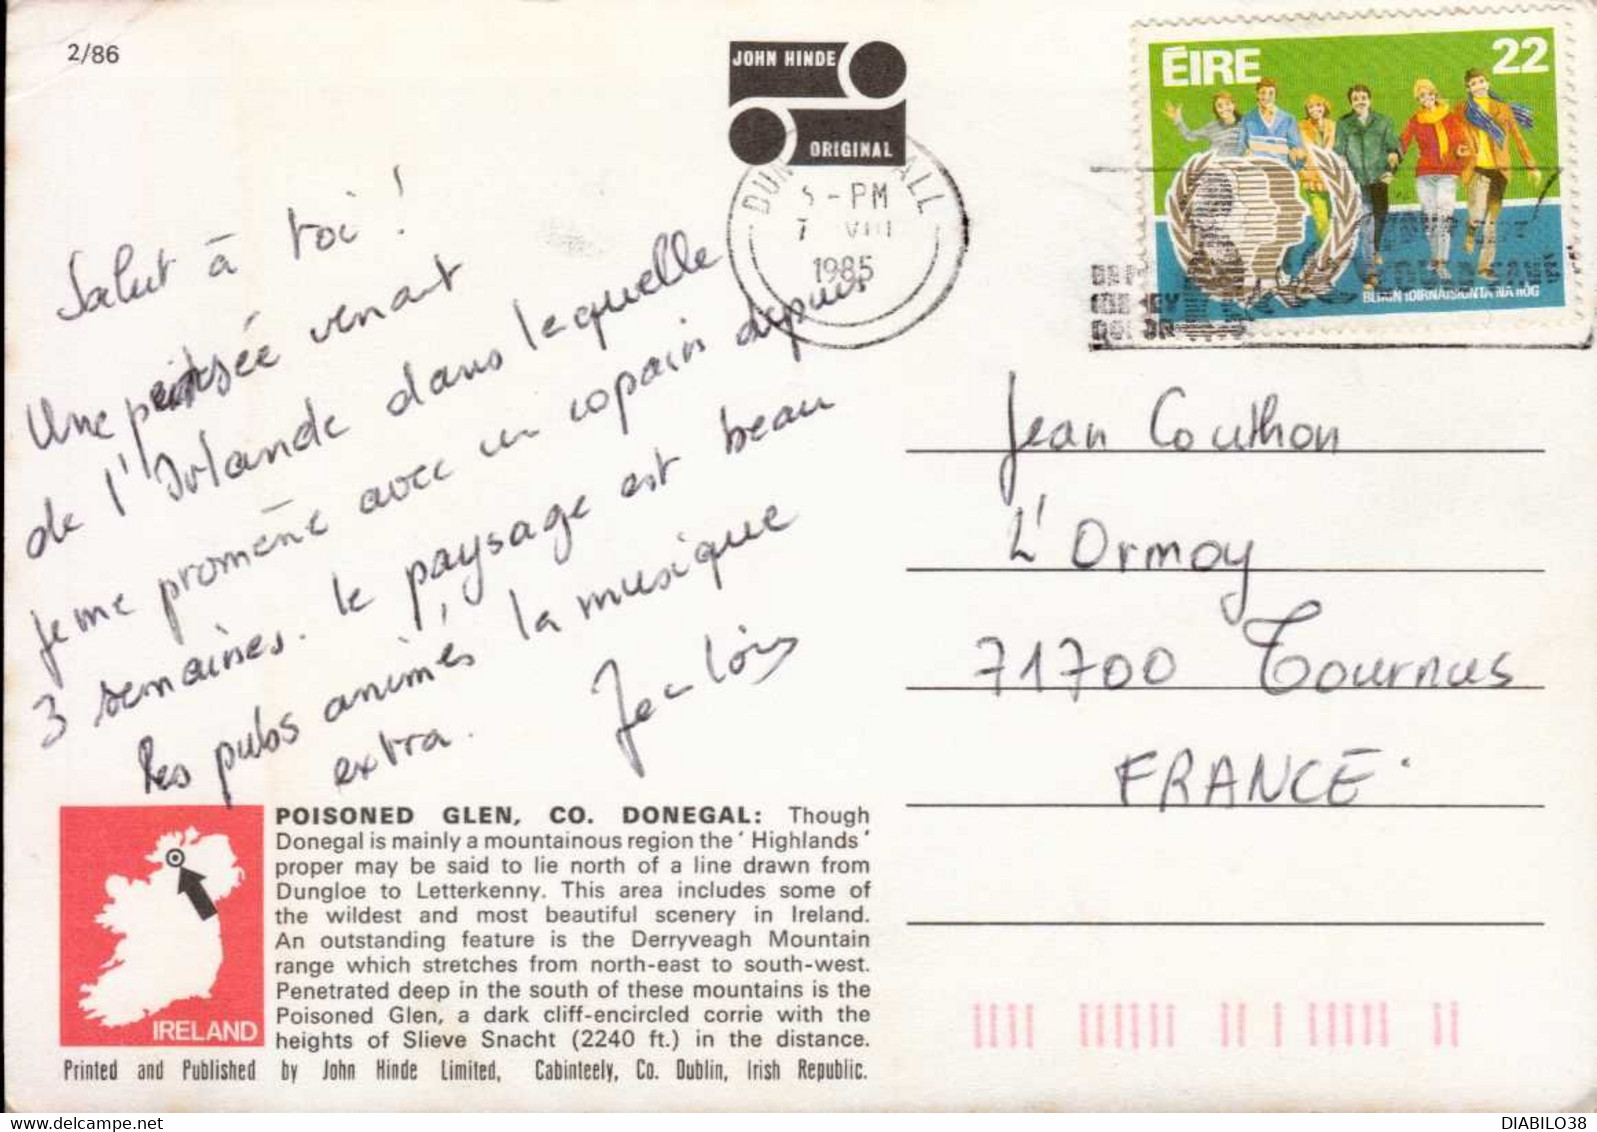 2/86
JOHN HINDE
ORIGINAL
ÉIRE 22
BLIAIN IDIRNÁISIÚNTA NA hÓG
- PM
VIII
1985
Salut à toi !
Une pensée venant
de l'Irlande dans lequelle
Je me promène avec un copain depuis
3 semaines. le paysage est beau
les pubs animés, la musique
extra.
Jean Louis
Jean Couthon
L'Ormoy
71700 Tournus
FRANCE.
POISONED GLEN, CO. DONEGAL: Though
Donegal is mainly a mountainous region the 'Highlands'
proper may be said to lie north of a line drawn from
Dungloe to Letterkenny. This area includes some of
the wildest and most beautiful scenery in Ireland.
An outstanding feature is the Derryveagh Mountain
range which stretches from north-east to south-west.
Penetrated deep in the south of these mountains is the
Poisoned Glen, a dark cliff-encircled corrie with the
heights of Slieve Snacht (2240 ft.) in the distance.
IRELAND
Printed and Published by John Hinde Limited, Cabinteely, Co. Dublin, Irish Republic.
DIABILO38